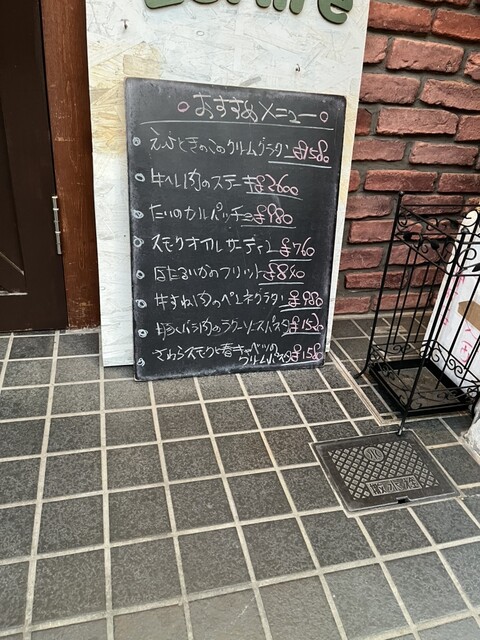 おすすめメニュー
えびときのこのクリームグラタン ¥1580
牛ヘレ肉のステーキ ¥2600
たいのカルパッチョ ¥980
スモークオイルサーディン ¥760
ほたるいかのフリット ¥880
牛すね肉のペンネグラタン ¥980
豚バラ肉のラグーソースパスタ
さわらスモークと春キャベツの
クリームパスタ ¥1580